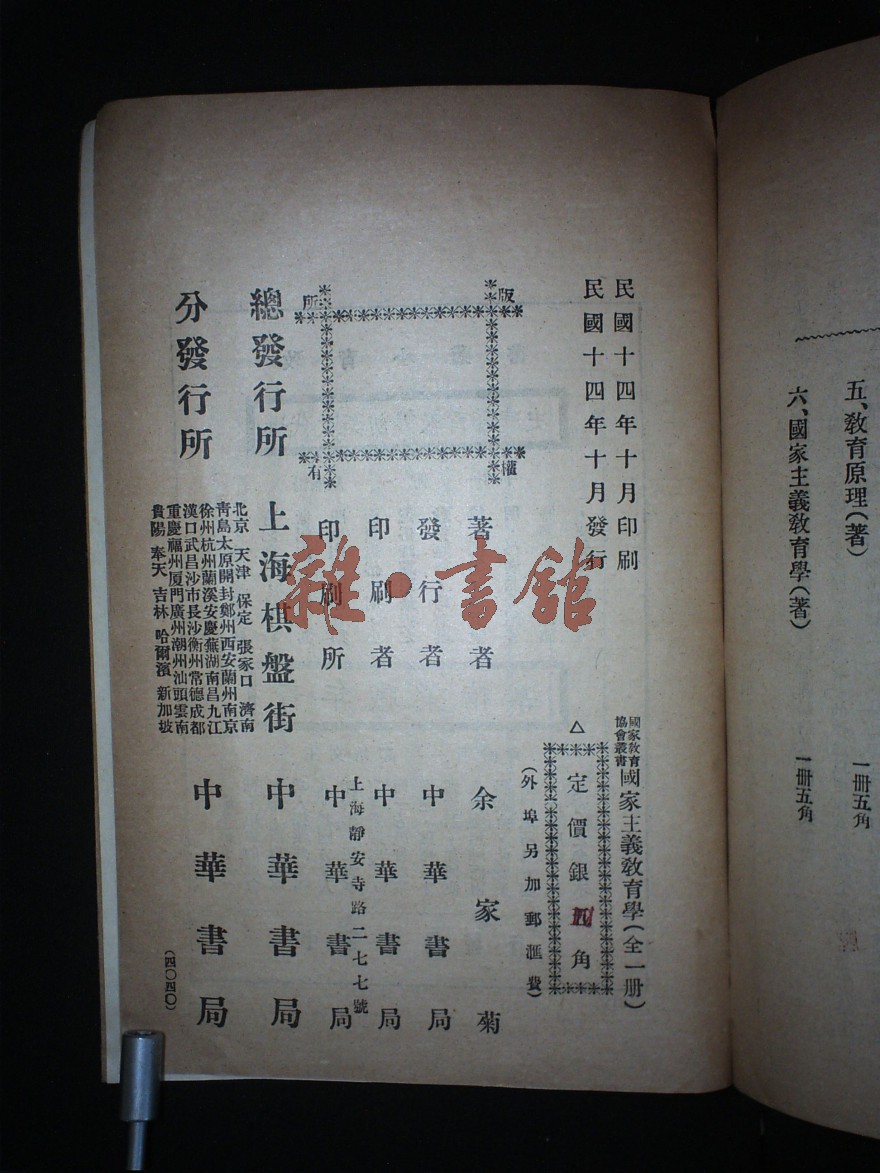 五、教育原理(著)
一冊五角
六、國家主義教育學(著)
一冊五角
民國十四年十月印刷
民國十四年十月發行
國家教育
協會叢書
國家主義教育學(全一冊)
△
定價銀五角
(外埠另加郵匯費)
版權所有
著者 余家菊
發行者 中華書局
印刷者 中華書局
上海靜安寺路二七七號
印刷所 中華書局
總發行所 上海棋盤街 中華書局
分發行所
北京 天津 保定 張家口 濟南
青島太原開封鄭州西安蘭州南京
徐州杭州蘭溪安慶蕪湖南昌九江
漢口武昌沙市長沙衡州常德成都
重慶福州厦門廣州潮州汕頭雲南
貴陽 奉天 吉林 哈爾濱 新加坡
中華書局
(四〇四〇)
雜·書館